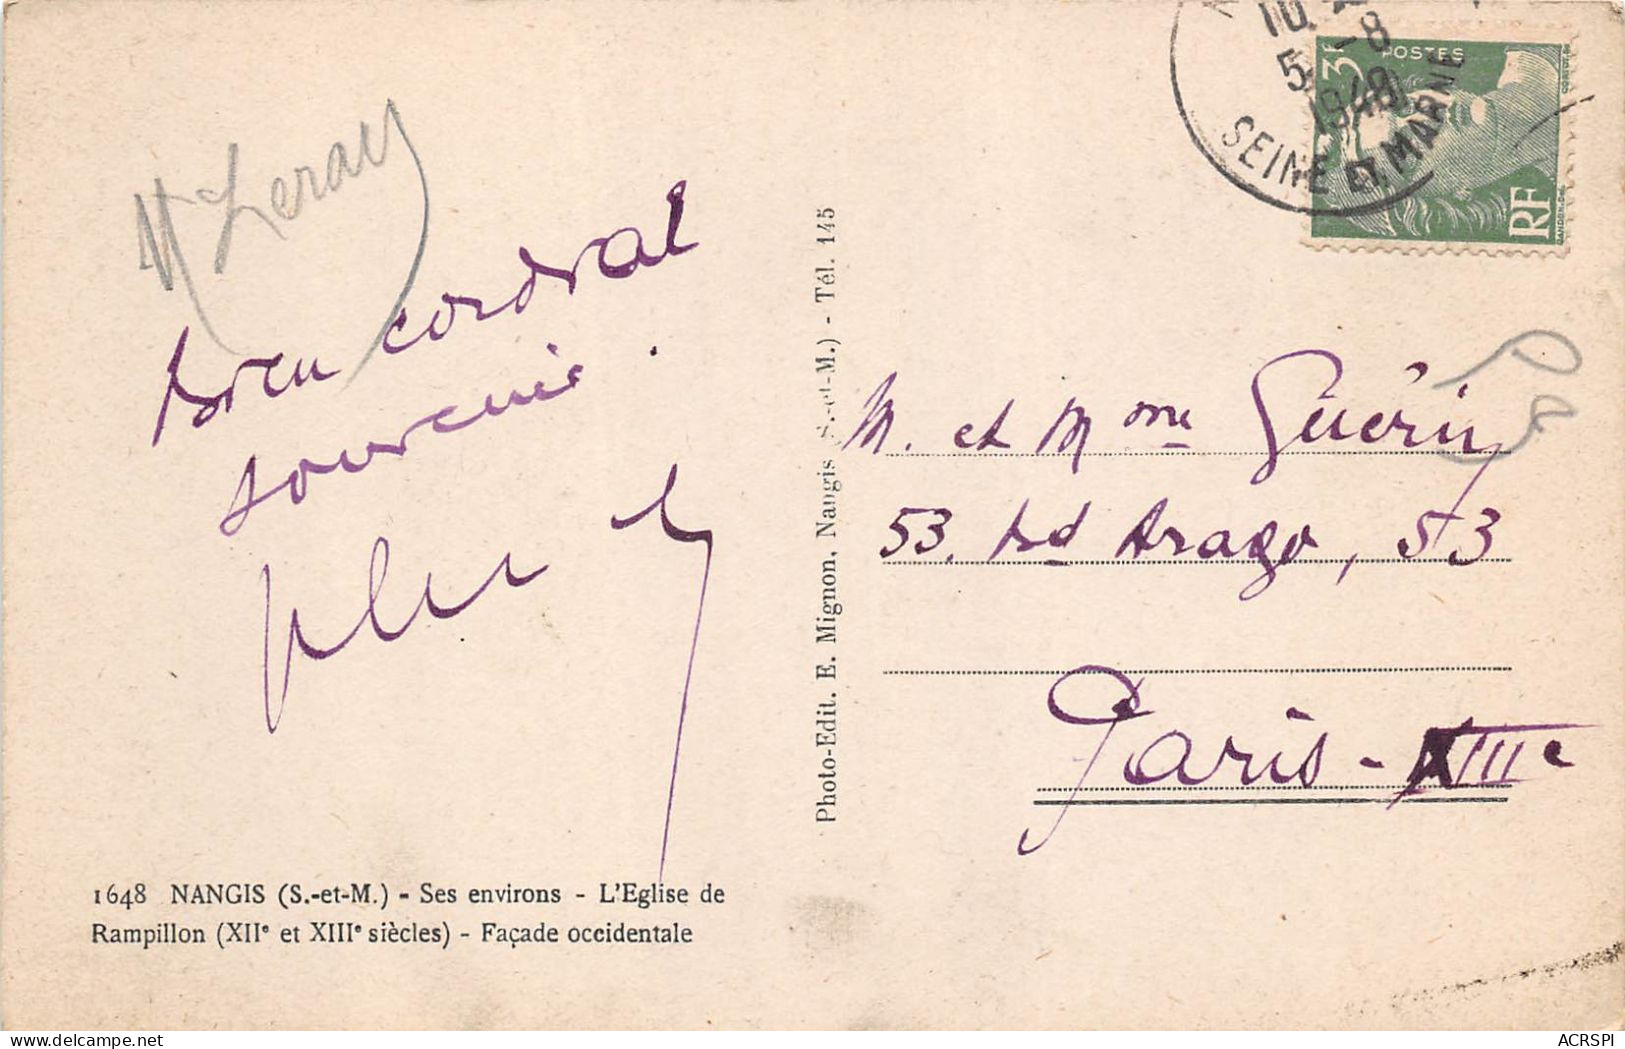 M Leray
Bien cordial
souvenir.
1648 NANGIS (S.-et-M.) - Ses environs - L'Eglise de
Rampillon (XIIe et XIIIe siècles) - Façade occidentale
Photo-Edit. E. Mignon, Nangis (S.-et-M.) - Tél. 145
5 -8
1948
SEINE ET MARNE
3F
POSTES
RF
M. et Mme Guérin
53. Bd Arago, 53
Paris-XIIIe
ACRSPI